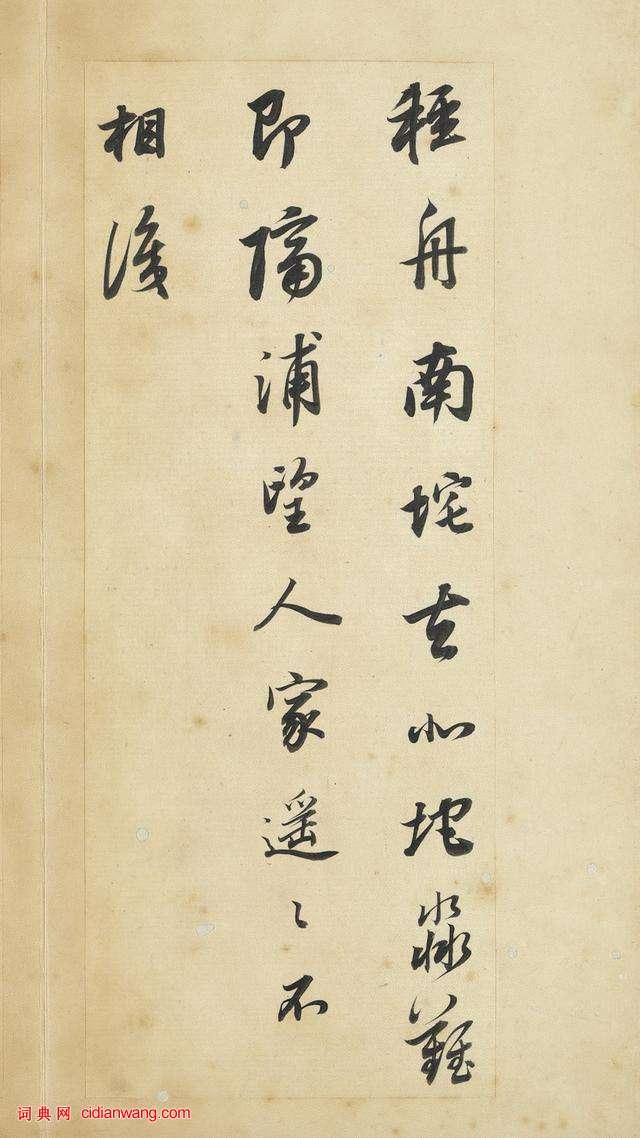 輕舟南垞去北垞淼難
即隔浦望人家遙〻不
相識
词典网 cidianwang.com